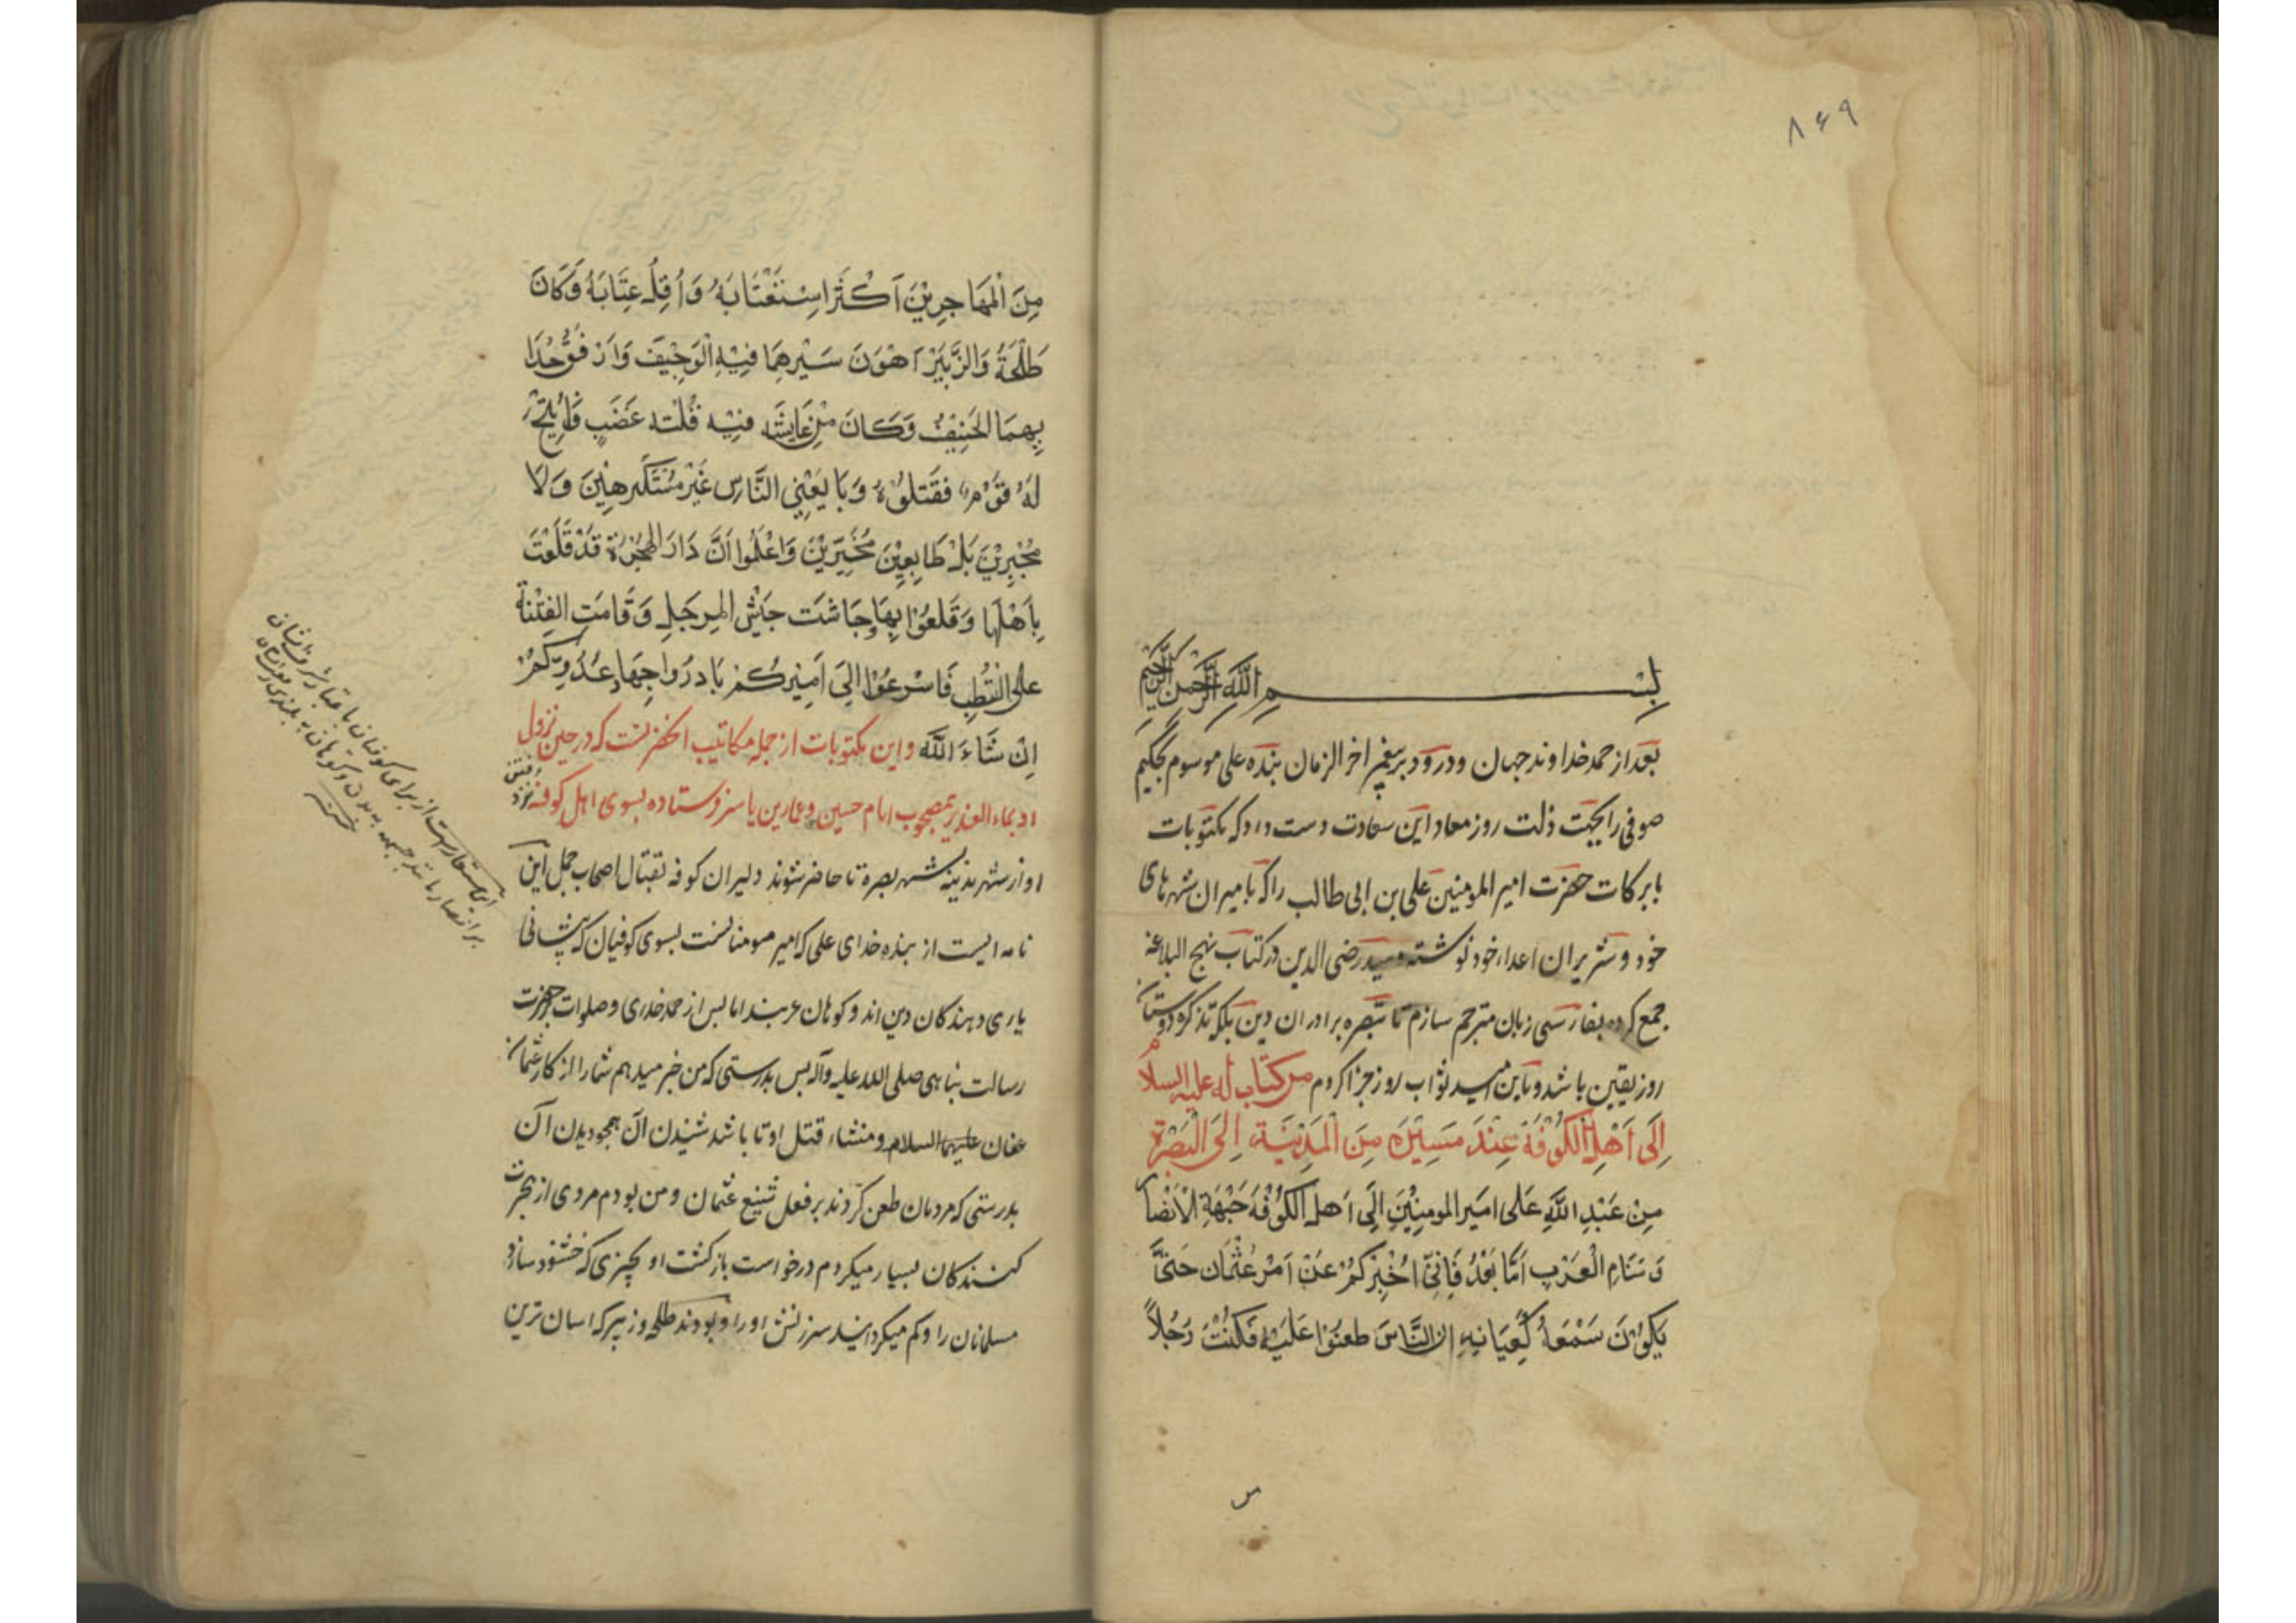 ۸۶۹
بِسْمِ اللَّهِ الرَّحْمنِ الرَّحِيمِ
بعد از حمد خداوند جهان و درود بر پیغمبر اخر الزمان بنده علی موسوم بحکیم
صوفی را بجهت ذلت روز معاد این سعادت دست داد که مکتوبات
با برکات حضرت امیر المومنین علی بن ابی طالب را که بامیران شهرهای
خود و شریران اعداء خود نوشته و سید رضی الدین در کتاب نهج البلاغه
جمع کرده بفارسی زبان مترجم سازم تا تبصره برادران دین بلکه تذکره دوستان
روز یقین باشد و باین امید ثواب روز جزا کردم من کتاب له علیه السلام
اِلَى اَهْلِ الْكُوْفَةِ عِنْدَ مَسِيْرِهِ مِنَ الْمَدِيْنَةِ اِلَى الْبَصْرَةِ
مِنْ عَبْدِ اللَّهِ عَلى امَيرِ المومِنِيْنَ اِلَى اَهل الكُوْفَهَ جَبْهَةِ الْاَنْصَار
وَ سَنَامِ الْعَرَبِ اَمَّا بَعْدُ فَاِنّىِ اُخْبِرُكُمْ عَنْ اَمْرِ عُثْمَان حَتىَّ
يَكُوْنَ سَمْعَهُ كَعِيَانِهِ ان النَّاسَ طعَنُوْا عَلَيْهِ فَكُنْتُ رَجُلاً
مِنَ الْمَهَاجِرِيْنَ اَكْثَرَ اسِتعْتَابَهُ وَ اُقِلُّ عِتَابَهُ وَكَانَ
طَلْحَةُ وَالزُّبَيْرُ اَهْوَنَ سَيْرِهِمَا فِيْهِ الْوَجِيْفَ وَاَرْفَقُ حُدَا
بِهِمَا الحَنِيْفُ وَكَانَ مِنْ عَايِشَه فِيْهِ فَلْتَه غَضَبٍ فَاُتِيْحَ
لَهُ قَوْم فقَتَلُوْهُ وَبَا يَعَنِي النَّاس غَيْرَ مُسْتَكْرِهِيْنَ وَ لَا
مُجْبَرِيْنَ بَلْ طَايِعِيْنَ مُخَيَّرِيْنَ وَاعْلَمُوا اَنَّ دَارَ الهِجْرَةِ قَدْ قَلَعَتْ
بِاَهْلِهَا وَ قَلَعُوْا بِهَا وِجَاشَت جَيْش المِرجَلِ وَ قَامَتِ الفِتْنَة
على القُطبِ فَاسْرِعُوْا اِلىَ اَمِيْرِكُمْ بَادِرُوا جِهَادِ عَدُوِّكُمْ
اِنْ شَاءَ اللَّه و این مکتوبات از جمله مکاتیب انحضرتست که در حین نزول
او بماء العذیر بمصحوب امام حسین و عمار بن یاسر فرستاده بسوی اهل کوفه نزد رفتن
او از شهر مدینه بشهر بصره تا حاضر شوند دلیران کوفه بقتال اصحاب جمل این
نامه ایست از بنده خدای علی که امیر مومنانست بسوی کوفیان که پیشانی
یاری دهندکان دین اند و کوهان عربند اما پس از حمد خدای و صلوات حضرت
رسالت پناهی صلی الله علیه وآله پس بدرستی که من خبر میدهم شما را از کار عثمان
عفان علیهما السلام و منشاء قتل او تا باشد شنیدن آن همچو دیدن آن
بدرستی که مردمان طعن کردند بر فعل شنیع عثمان و من بودم مردی از هجرت
کنندکان بسیار میکردم درخواست بازکشت او بچیزی که خشنود سازد
مسلمانان را و کم میکردانید سرزنش او را و بودند طلحه و زبیر که اسان ترین
این استعارتست از برای کوفیان باعتبار شرف ایشان
بر انصار مانند جبهه به بدن و کوهان به بلندی